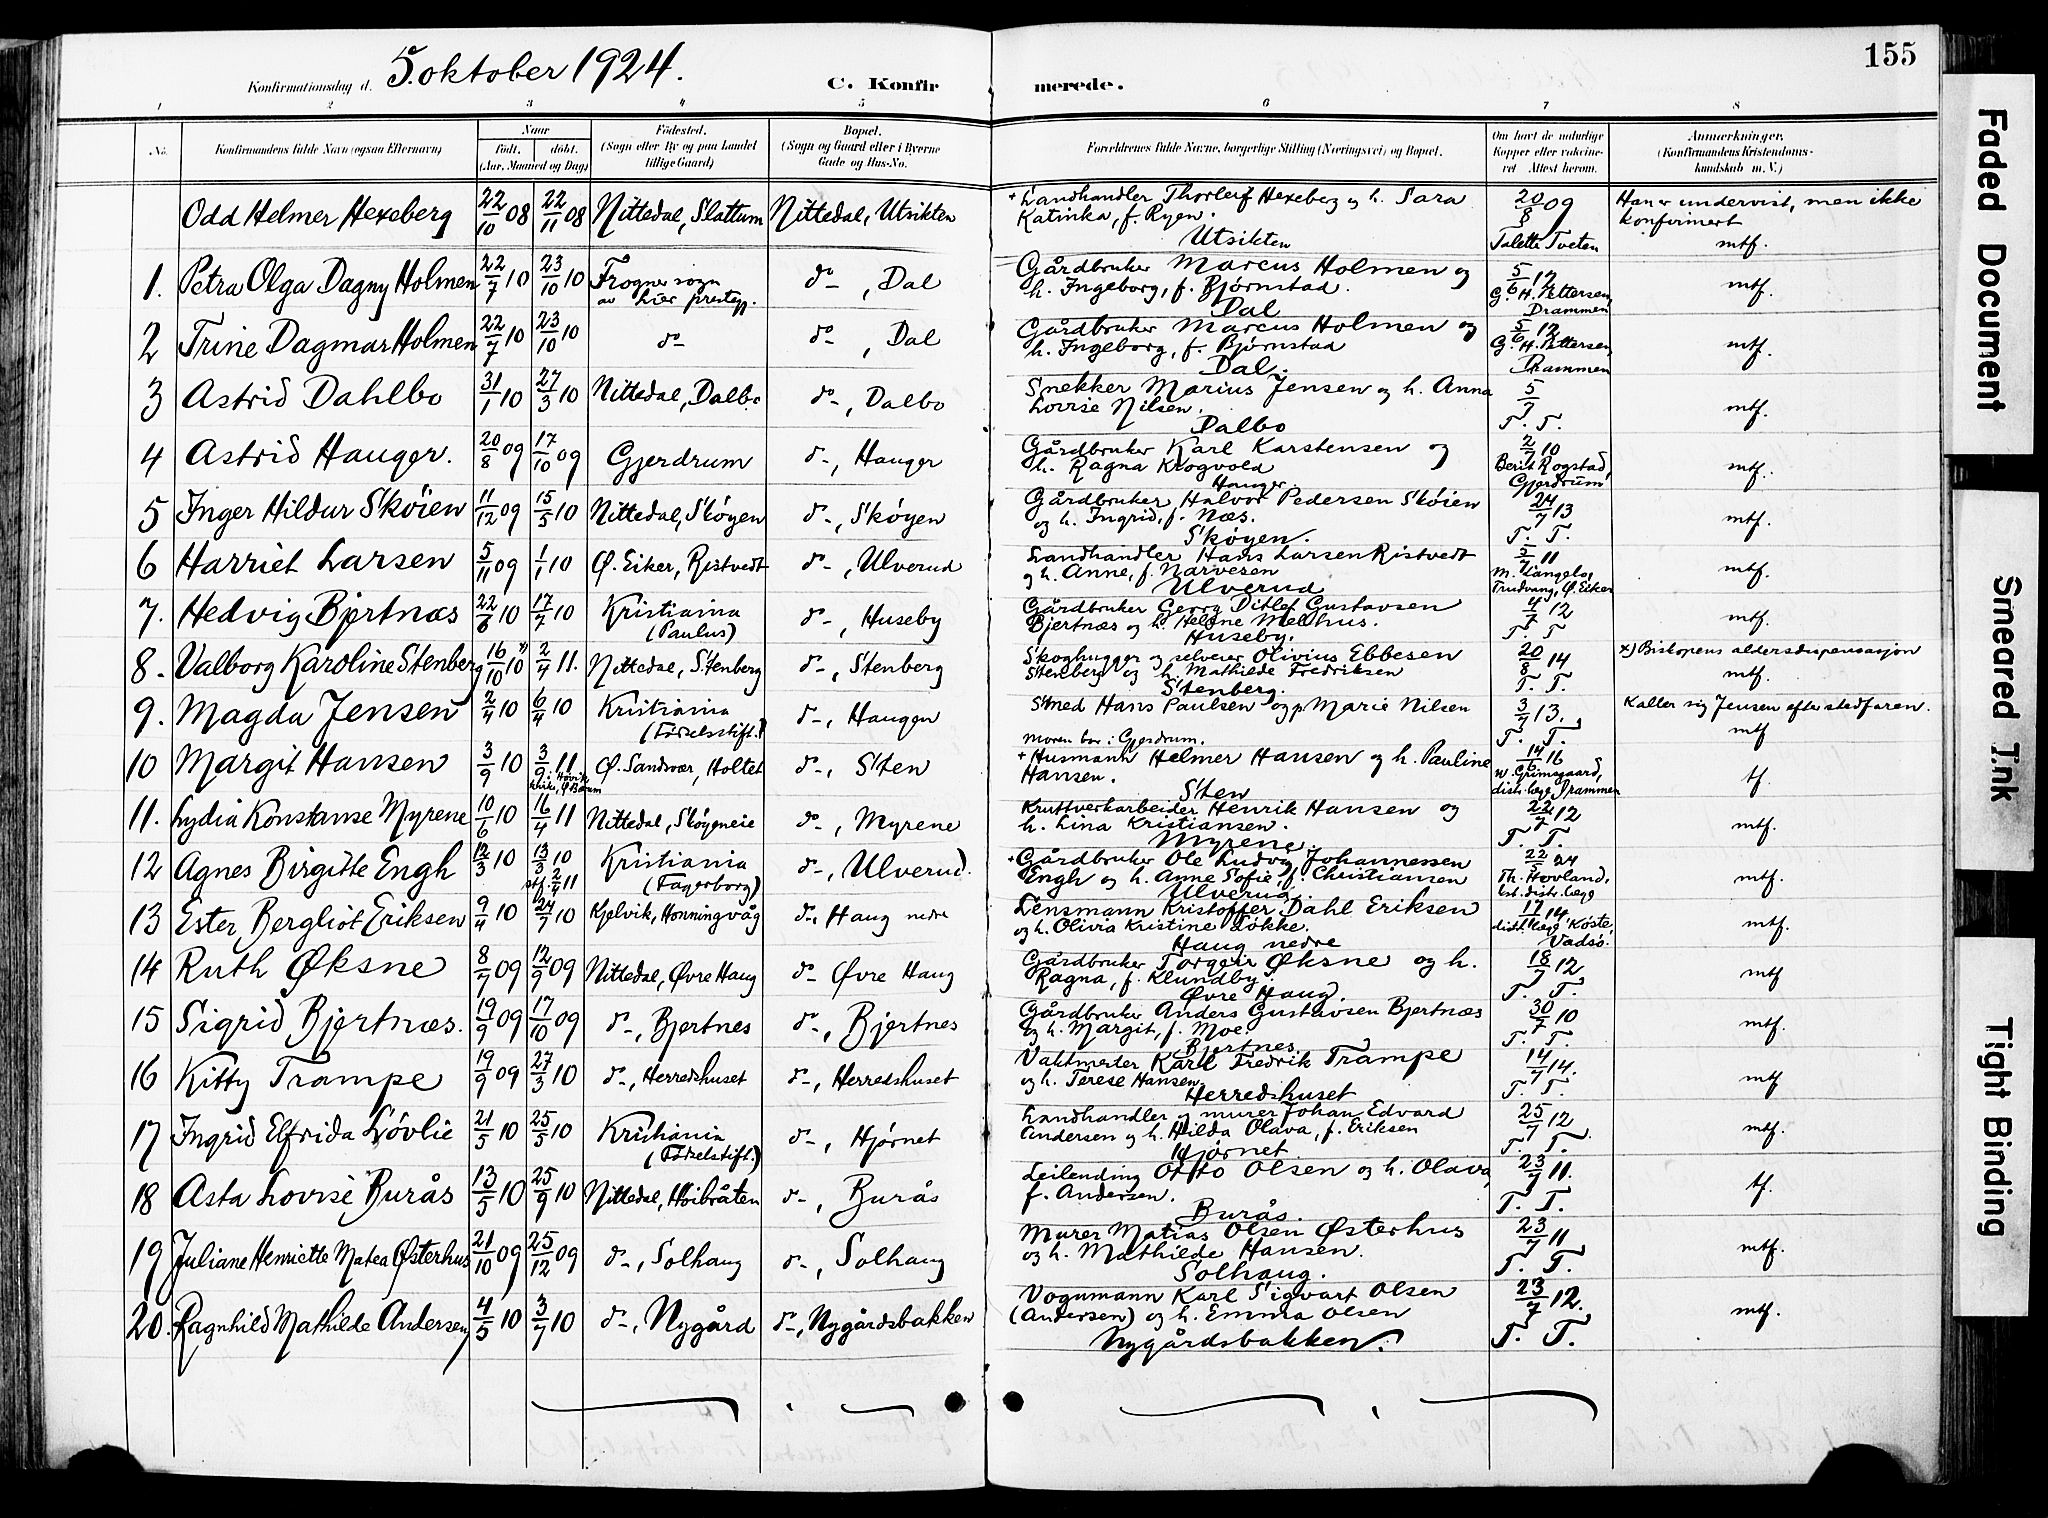 Konfirmationsdag d. 5. oktober 1924. C. Konfirmerede. 155
1 2 3 4 5 6 7 8
No. Konfirmandens fulde Navn (ogsaa Efternavn) Naar født. døbt. (Aar, Maaned og Dag) Fødested. (Sogn eller By og paa Landet tillige Gaard) Bopæl. (Sogn og Gaard eller i Byerne Gade og Hus-No. Forældrenes fulde Navne, borgerlige Stilling (Næringsvei) og Bopæl. Om havt de naturlige Kopper eller vakcineret. Attest herom. Anmærkninger. (Konfirmandens Kristendomskundskab m. V.)
Odd Helmer Hexeberg 22/10 08 22/11 08 Nittedal, Slattum Nittedal, Utsikten + Landhandler Thorleif Hexeberg og h. Sara 20/8 09 Han er undervist, men ikke
Katinka, f. Ryen. konfirmert
Utsikten Talette Tveten mtf.
1. Petra Olga Dagny Holmen 22/7 10 23/10 10 Frogner sogn do-, Dal Gårdbruker Marcus Holmen og 5/6 12 mtf.
av hier prestegj. h. Ingeborg, f. Bjørnstad. G. H. Pettersen,
Dal Drammen
2 Trine Dagmar Holmen 22/7 10 23/10 10 do- do-, Dal Gårdbruker Marcus Holmen og 5/6 12 mtf.
h. Ingeborg, f. Bjørnstad G. H. Pettersen,
Dal. Drammen
3 Astrid Dahlbo 31/1 10 27/3 10 Nittedal, Dalbo do-, Dalbo Snekker Marius Jensen og h. Anna 5/7 mtf.
Lovise Nilsen.
Dalbo T. T.
4 Astrid Hauger. 20/8 09 17/10 09 Gjerdrum d-, Hauger Gårdbruker Karl Karstensen og 2/7 10 mtf.
h. Ragna Krogvold Berit Rogstad,
Hauger. Gjerdrum
5 Inger Hildur Skøien 11/12 09 15/5 10 Nittedal, Skøyen d-, Skøyen Gårdbruker Halvor Pedersen Skøien 24/7 13 mtf.
og h. Ingrid, f. Næs.
Skøyen. T. T.
6 Harriet Larsen 5/11 09 1/1 10 Ø. Eiker, Ristvedt d-, Ulverud Landhandler Hans Larsen Ristvedt 5/7 11 mtf.
og h. Anne, f. Narvesen M. Langelo,
Ulverud Trudvang, Ø. Eiker
7. Hedvig Bjertnæs 22/6 10 17/7 10 Kristiania d-, Huseby Gårdbruker Georg Ditlef Gustavsen 4/7 12 mtf.
(Paulus) Bjertnæs og h. Helene Melhus.
Huseby. T. T
8. Valborg Karoline Stenberg 16/10 10 x) 2/4 11. Nittedal, Stenberg d-, Stenberg Skoghugger og selveier Olivius Ebbesen 20/8 14 x) Biskopens aldersdispensasjon
Stenberg og h. Mathilde Fredriksen mtf.
Stenberg. T. T.
9. Magda Jensen 2/4 10 6/4 10 Kristiania d-, Haugen Smed Hans Paulsen og p. Marie Nilsen 3/7 13. Kaller sig Jensen efter stedfaren.
(Fødselsstift.) Moren bor i Gjerdrum. T. T. mtf
10 Margit Hansen 3/9 10 3/9 11 Ø. Sandsvær, Holtet d-, Sten + Husmann Helmer Hansen og h. Pauline 14/6 16 tf.
Hansen. W. Grimsgaard,
Sten distr. læge Drammen
11. Lydia Konstanse Myrene 10/6 10 16/4 11 Nittedal, Skøyeneie do-, Myrene Kruttverkarbeider Henrik Hansen og 22/7 12 mtf.
h. Lina Kristiansen.
Myrene. T. T.
12 Agnes Birgitte Engh 12/3 10 13/3 10 Kristiania d-, Ulverud. + Gårdbruker Ole Ludvig Johannessen 22/5 24 mtf.
stf. 2/4 11 (Fagerborg) Engh og h. Anne Sofie, f. Christiansen Th. Hovland,
Ulverud. bst. distr. læge
13 Ester Bergliot Eriksen 9/4 10 24/7 10 Kjelvik, Honningvåg d-, Haug nedre Lensmann Kristoffer Dahl Eriksen 17/7 14 mtf.
og h. Olivia Kristine Løkke. distr. læge Koste,
Haug nedre Vadsø.
14 Ruth Øksne 8/7 09 12/9 09 Nittedal, Øvre Haug d- Øvre Haug Gårdbruker Torgeir Øksne og h. 18/7 12 mtf
Ragna, f. Klundby.
Øvre Haug. T. T.
15 Sigrid Bjertnæs. 19/9 09 17/10 09 d-, Bjertnes d-, Bjertnes Gårdbruker Anders Gustavsen Bjertnæs 30/7 10 mtf.
og h. Margit, f. Moe.
Bjertnes. T. T.
16 Kitty Trampe 19/9 09 27/3 10 d-, Herredshuset d-, Herredshuset Vaktmester Karl Fredrik Trampe 14/7 14. mtf
og h. Terese Hansen
Herredshuset T. T.
17 Ingrid Elfrida Løvlie 21/5 10 25/5 10 Kristiania d-, Hjørnet Landhandler og murer Johan Edvard 25/7 12 mtf.
(Fødselstift.) Andersen og h. Hilda Olava, f. Eriksen
Hjørnet T. T.
18 Asta Lovise Burås 13/5 10 25/9 10 Nittedal, Høibråten d-, Burås Leilending Otto Olsen og h. Olava, 23/7 11. tf.
f. Andersen.
Burås. T. T.
19 Juliane Henriette Matea Østerhus 21/10 09 25/12 09 d-, Solhaug d-, Solhaug Murer Matias Olsen Østerhus 23/7 11 mtf.
og h. Mathilde Hansen.
Solhaug. T. T.
20. Ragnhild Mathilde Andersen 4/5 10 3/7 10 d-, Nygård d-, Nygårdsbakken Vognmann Karl Sigvart Olsen 23/7 12. mtf.
(Andersen) og h. Emma Olsen
Nygårdsbakken. T. T.
Faded Document
Smeared Ink
Tight Binding